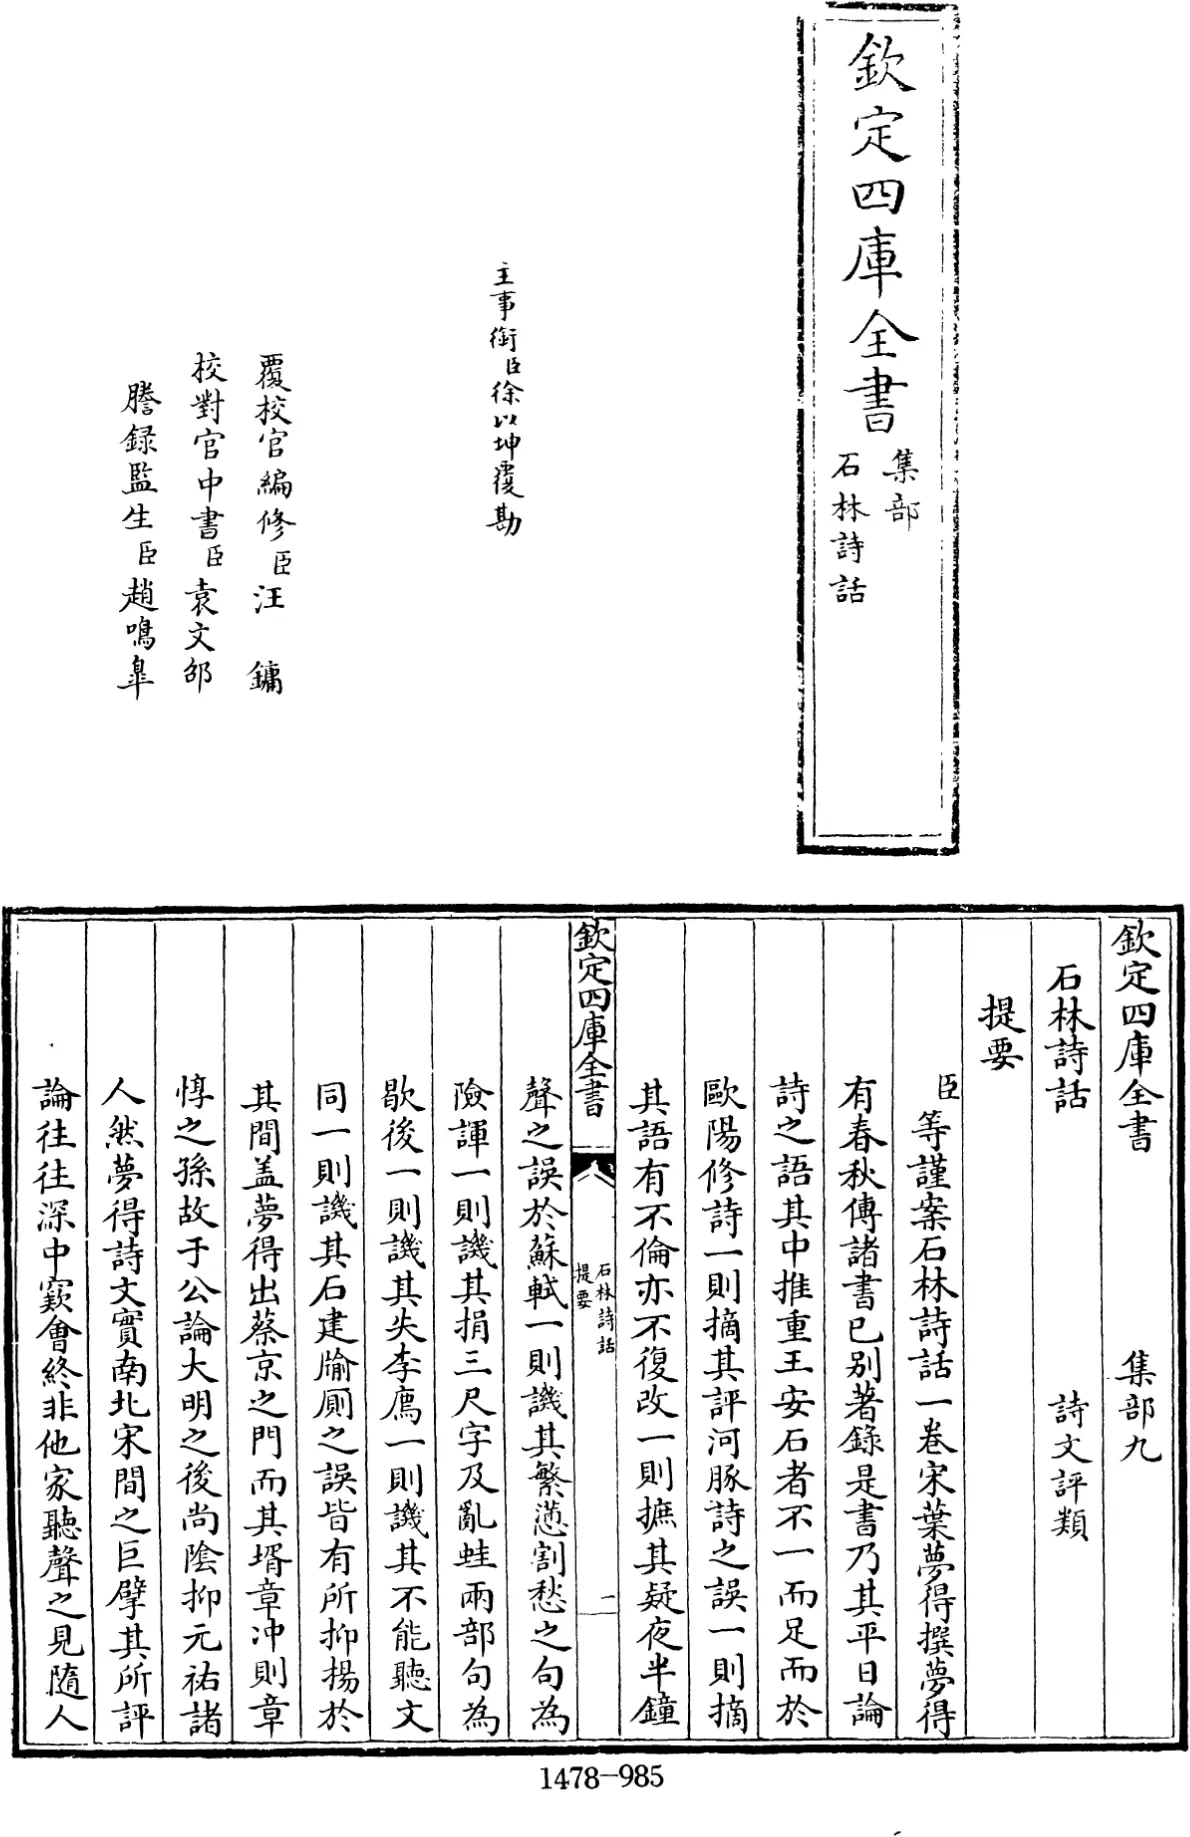 欽定四庫全書
集部
石林詩話
主事銜臣徐以坤覆勘
覆校官編修臣汪鏞
校對官中書臣袁文邵
謄録監生臣趙鳴臯
欽定四庫全書　集部九
石林詩話　詩文評類
提要
臣等謹案石林詩話一卷宋葉夢得撰夢得
有春秋傳諸書已别著錄是書乃其平日論
詩之語其中推重王安石者不一而足而於
歐陽修詩一則摘其評河豚詩之誤一則摘
其語有不倫亦不復改一則摭其疑夜半鐘
欽定四庫全書
石林詩話
提要
一
聲之誤於蘇軾一則譏其繁懣割愁之句為
險諢一則譏其捐三尺字及亂蛙兩部句為
歇後一則譏其失李廌一則譏其不能聽文
同一則譏其石建牏厠之誤皆有所抑揚於
其間盖夢得出蔡京之門而其壻章冲則章
惇之孫故于公論大明之後尚陰抑元祐諸
人然夢得詩文實南北宋間之巨擘其所評
論往往深中窾會終非他家聽聲之見隨人
1478-985